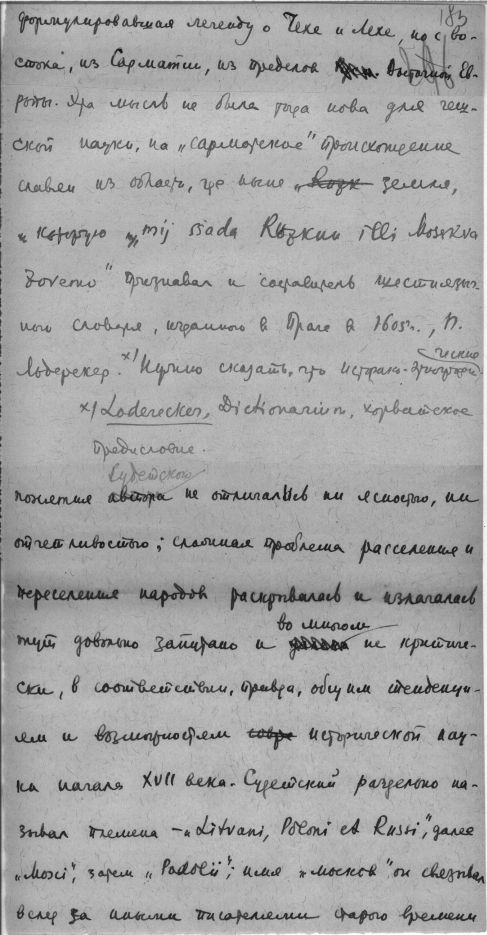 183
формулировавшая легенду о Чехе и Лехе, но с во-
стока, из Сарматии, из пределов Восточной Ев-
ропы. Эта мысль не была тогда нова для чеш-
ской науки, на „сарматское" происхождение
славян из области, где ныне земля,
„которую „mij ssada Rusekuu illi Moskva
zovemo" признавал и составитель шестиязыч-
ного словаря, изданного в Праге в 1605 г., П.
Лодерекер. x) Нужно сказать, что историко-этнографи-
ческие
x) Loderecker, Dictionarium, хорватское
предисловие.
Судетского
понятия автора не отличались ни ясностью, ни
отчетливостью; сложная проблема расселения и
переселения народов раскрывалась и излагалась
во многом
тут довольно запутано и не критиче-
ски, в соответствии, правда, общим тенденци-
ям и возможностям совре исторической нау-
ки начала XVII века. Судетский раздельно на-
зывал племена – „Litvani, Poloni et Russi", далее
„Mosci", затем „Podolii"; имя „москов" он связывал
вслед за иными писателями старого времени